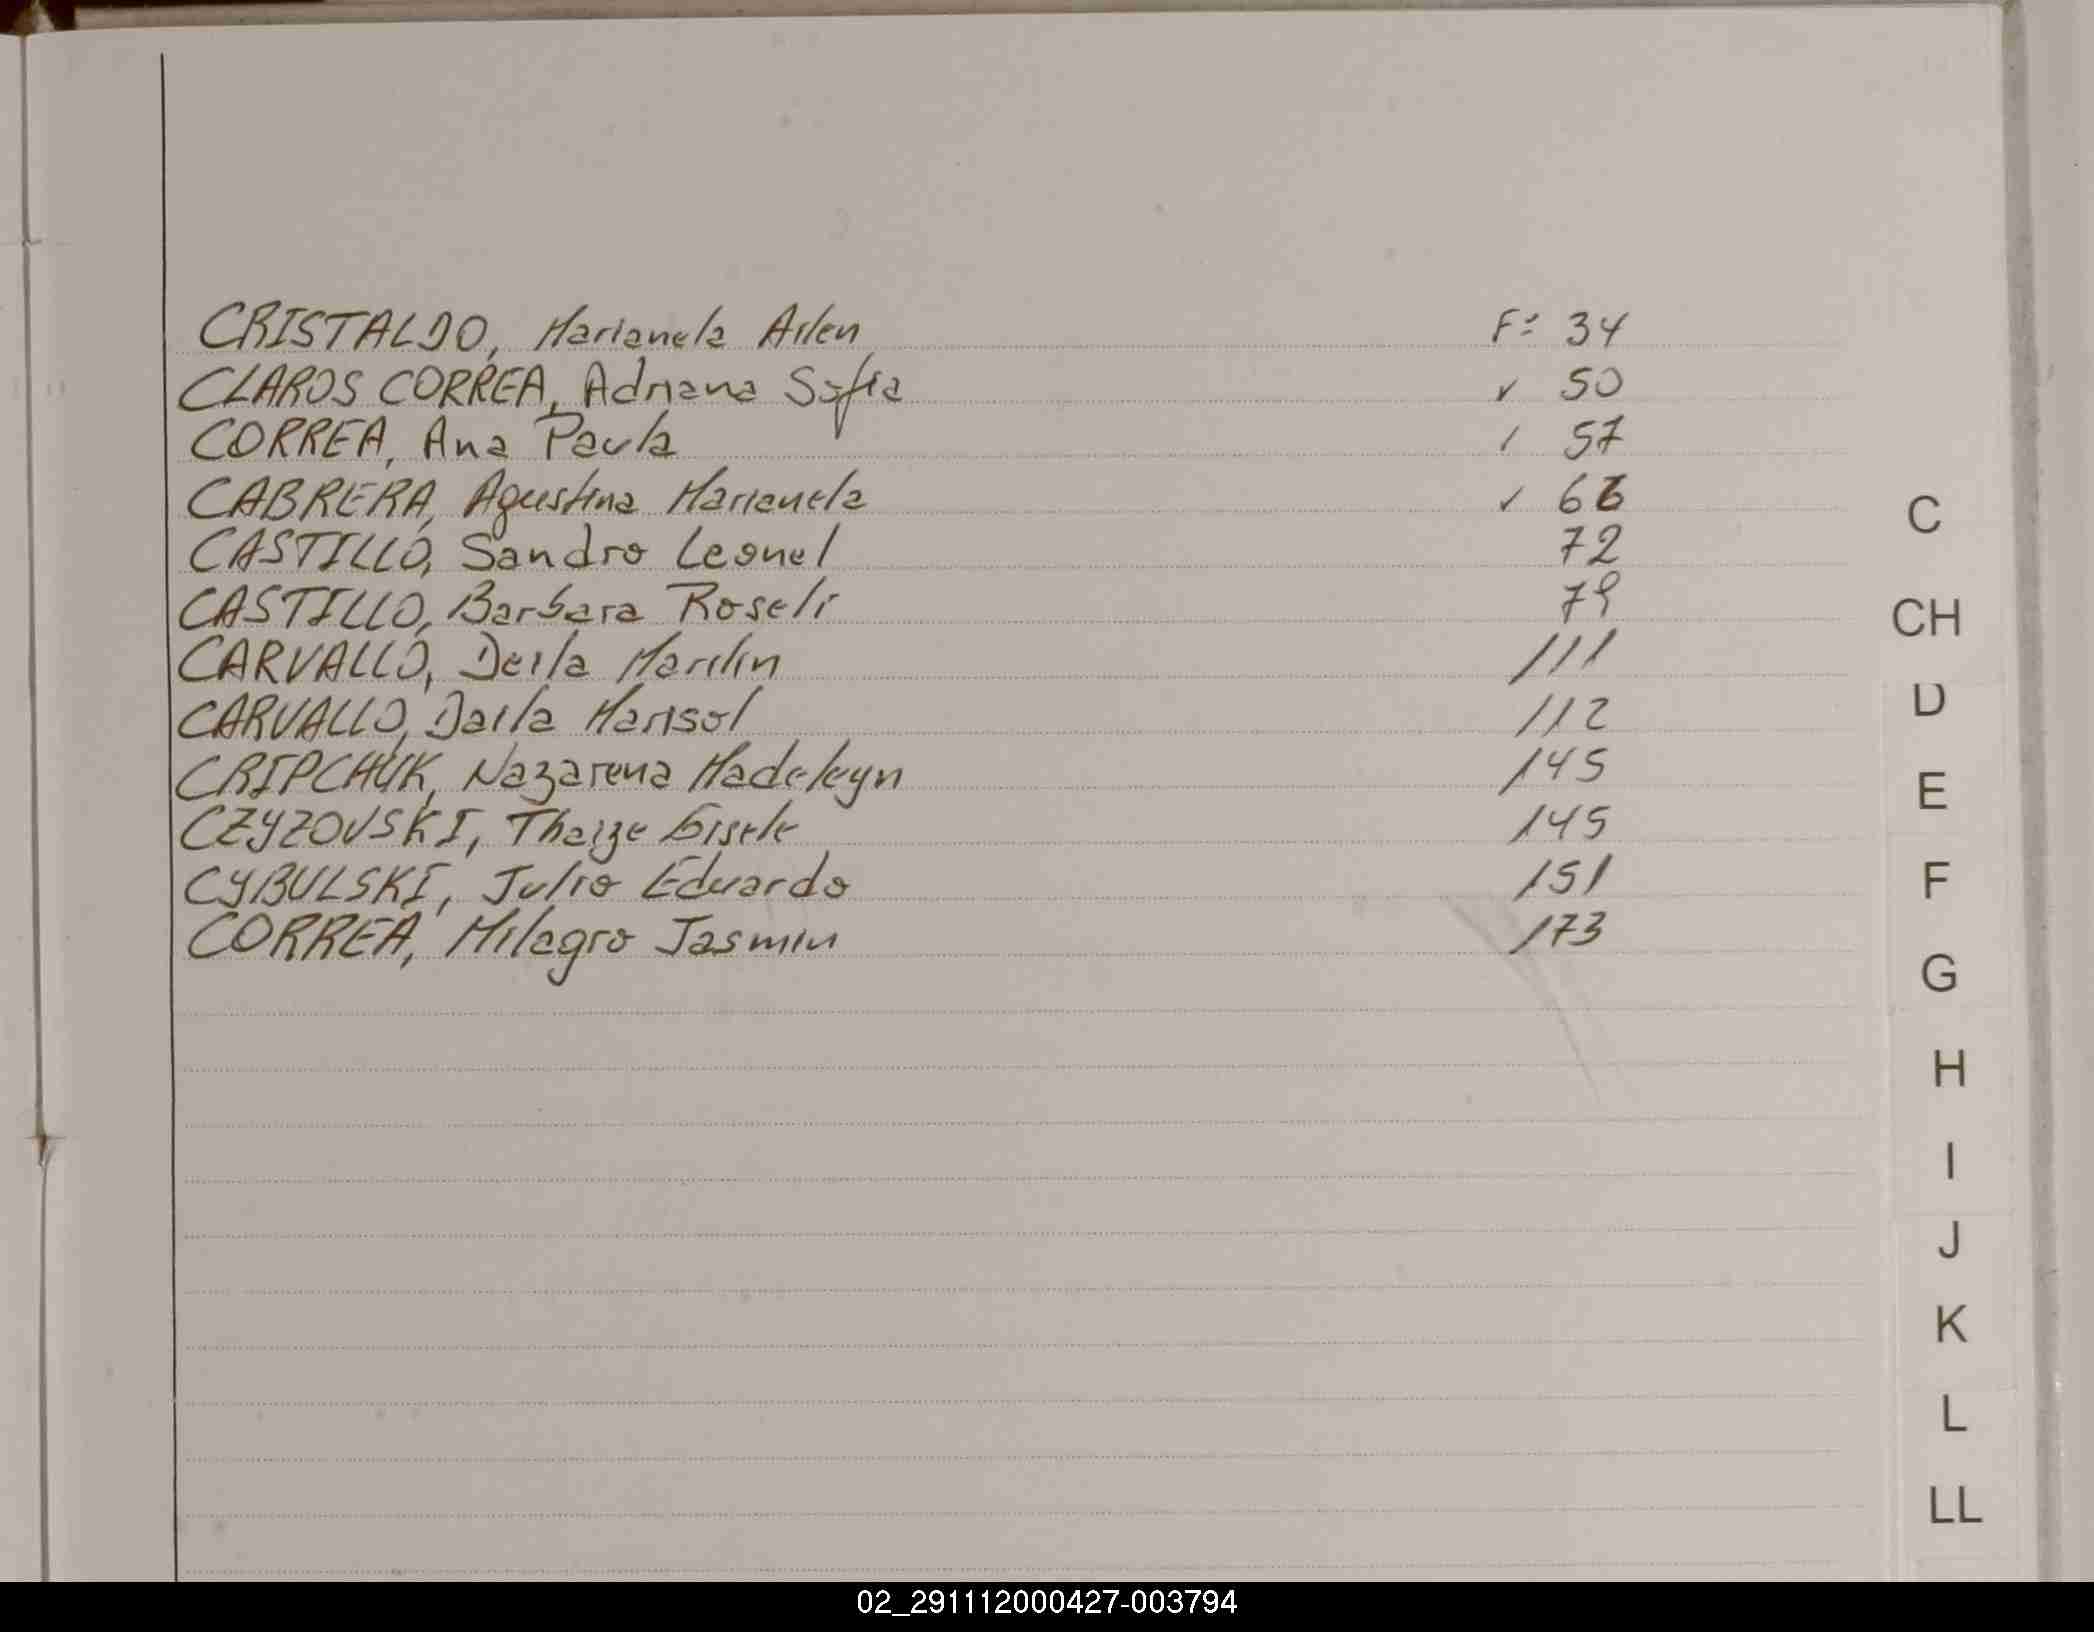 CRISTALDO, Marianela Ailen F: 34
CLAROS CORREA, Adriana Sofia ✓ 50
CORREA, Ana Paula / 57
CABRERA, Agustina Marianela ✓ 66
CASTILLO, Sandro Leonel 72
CASTILLO, Barbara Roseli 79
CARVALLO, Deila Marilin 111
CARVALLO, Daila Marisol 112
CRIPCHUK, Nazarena Madeleyn 145
CZYZOVSKI, Thaize Gisele 145
CYBULSKI, Julio Eduardo 151
CORREA, Milagro Jasmin 173
C
CH
D
E
F
G
H
I
J
K
L
LL
02_291112000427-003794